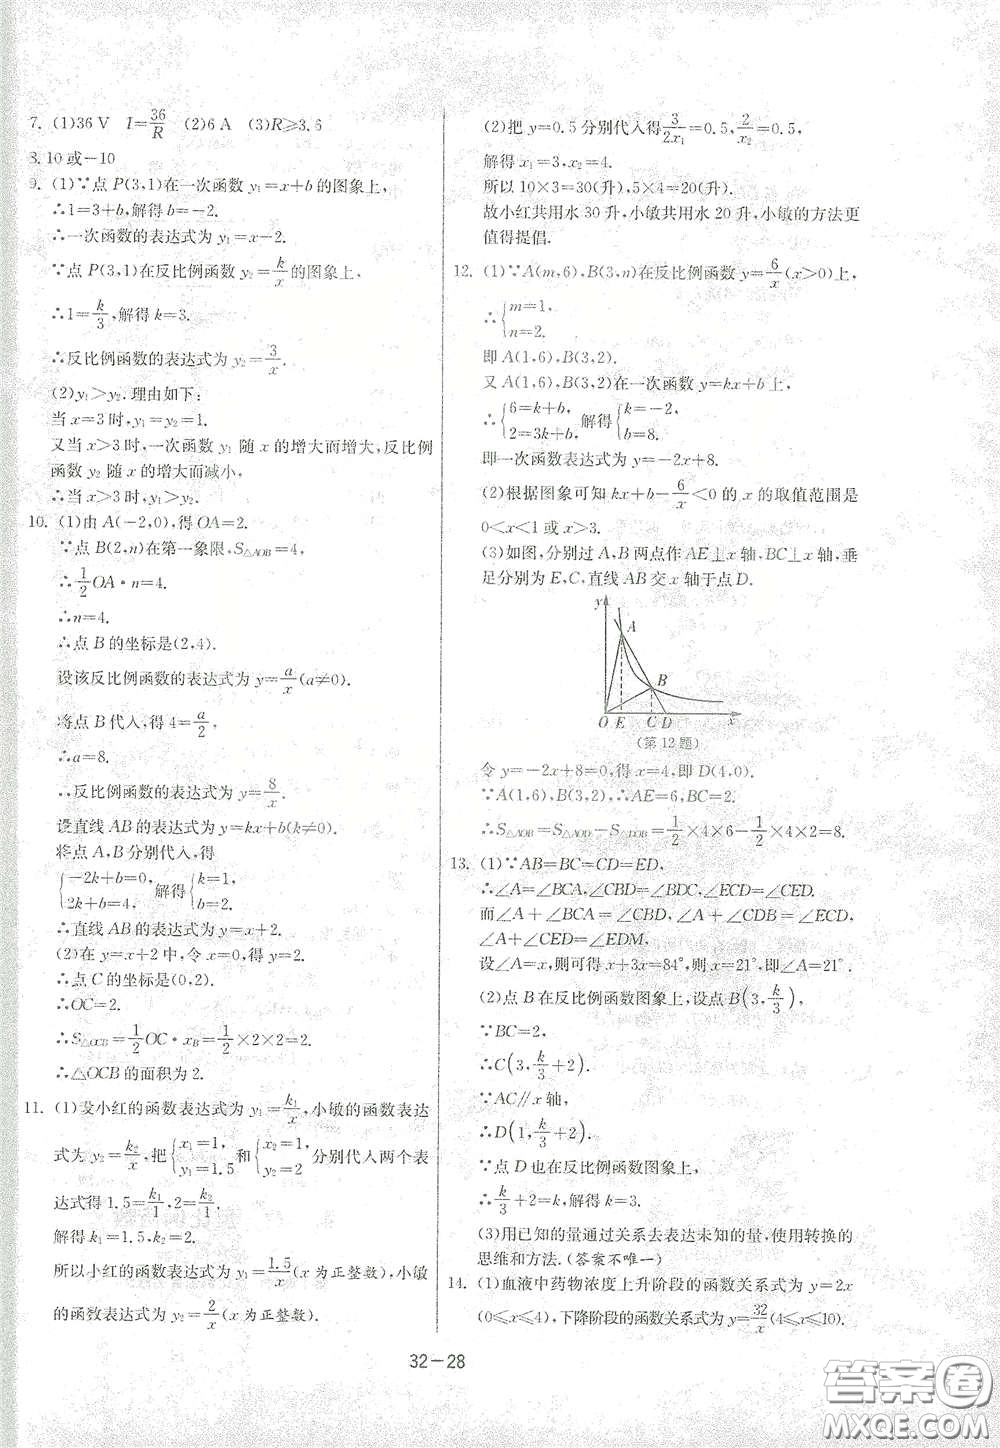 7. (1)36 V　I=36/R　(2)6 A　(3)R≥3.6
8. 10或-10
9. (1)∵点 P(3,1)在一次函数 y₁=x+b 的图象上,
∴1=3+b,解得 b=-2.
∴一次函数的表达式为 y₁=x-2.
∵点 P(3,1)在反比例函数 y₂=k/x 的图象上,
∴1=k/3,解得 k=3.
∴反比例函数的表达式为 y₂=3/x.
(2)y₁>y₂.理由如下:
当 x=3 时,y₁=y₂=1.
又当 x>3 时,一次函数 y₁ 随 x 的增大而增大,反比例
函数 y₂ 随 x 的增大而减小,
∴当 x>3 时,y₁>y₂.
10. (1)由 A(-2,0),得 OA=2.
∵点 B(2,n)在第一象限,S△AOB=4,
∴1/2 OA·n=4.
∴n=4.
∴点 B 的坐标是(2,4).
设该反比例函数的表达式为 y=a/x(a≠0).
将点 B 代入,得 4=a/2,
∴a=8.
∴反比例函数的表达式为 y=8/x.
设直线 AB 的表达式为 y=kx+b(k≠0).
将点 A,B 分别代入,得
{-2k+b=0, 2k+b=4, 解得{k=1, b=2.
∴直线 AB 的表达式为 y=x+2.
(2)在 y=x+2 中,令 x=0,得 y=2.
∴点 C 的坐标是(0,2).
∴OC=2.
∴S△OCB=1/2 OC·x_B=1/2×2×2=2.
∴△OCB 的面积为 2.
11. (1)设小红的函数表达式为 y₁=k₁/x,小敏的函数表达
式为 y₂=k₂/x,把{x₁=1, y₁=1.5 和{x₂=1, y₂=2 分别代入两个表
达式得 1.5=k₁/1,2=k₂/1,
解得 k₁=1.5,k₂=2.
所以小红的函数表达式为 y₁=1.5/x(x 为正整数),小敏
的函数表达式为 y₂=2/x(x 为正整数).
(2)把 y=0.5 分别代入得 3/2x₁=0.5,2/x₂=0.5,
解得 x₁=3,x₂=4.
所以 10×3=30(升),5×4=20(升).
故小红共用水 30 升,小敏共用水 20 升,小敏的方法更
值得提倡.
12. (1)∵A(m,6),B(3,n)在反比例函数 y=6/x(x>0)上,
∴{m=1, n=2.
即 A(1,6),B(3,2).
又 A(1,6),B(3,2)在一次函数 y=kx+b 上,
∴{6=k+b, 2=3k+b, 解得{k=-2, b=8.
即一次函数表达式为 y=-2x+8.
(2)根据图象可知 kx+b-6/x<0 的 x 的取值范围是
0<x<1 或 x>3.
(3)如图,分别过 A,B 两点作 AE⊥x 轴,BC⊥x 轴,垂
足分别为 E,C,直线 AB 交 x 轴于点 D.
y
A
B
O E C D x
(第 12 题)
令 y=-2x+8=0,得 x=4,即 D(4,0).
∵A(1,6),B(3,2),∴AE=6,BC=2.
∴S△AOB=S△AOD-S△DOB=1/2×4×6-1/2×4×2=8.
13. (1)∵AB=BC=CD=ED,
∴∠A=∠BCA,∠CBD=∠BDC,∠ECD=∠CED.
而∠A+∠BCA=∠CBD,∠A+∠CDB=∠ECD,
∠A+∠CED=∠EDM,
设∠A=x,则可得 x+3x=84°,则 x=21°,即∠A=21°.
(2)点 B 在反比例函数图象上,设点 B(3,k/3),
∵BC=2,
∴C(3,k/3+2).
∵AC∥x 轴,
∴D(1,k/3+2).
∵点 D 也在反比例函数图象上,
∴k/3+2=k,解得 k=3.
(3)用已知的量通过关系去表达未知的量,使用转换的
思维和方法.(答案不唯一)
14. (1)血液中药物浓度上升阶段的函数关系式为 y=2x
(0≤x≤4),下降阶段的函数关系式为 y=32/x(4≤x≤10).
32-28
答案卷
MXQE.COM